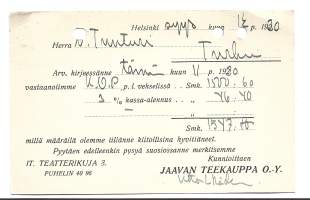 Helsinki syys kuun 12 p. 1930
Herra V. Tunturi
Turku
Arv. kirjeessänne tämä kuun 11 p. 1930
vastaanotimme K.O.P. p. l. vekselissä Smk. 1500:60
3 % kassa-alennus " 46:40
Smk. 1547:-
millä määrällä olemme tilinne kiitollisina hyvittäneet.
Pyytäen edelleenkin pysyä suosiossanne merkitsemme
Kunnioittaen
IT. TEATTERIKUJA 3. JAAVAN TEEKAUPPA O.-Y.
PUHELIN 40 96